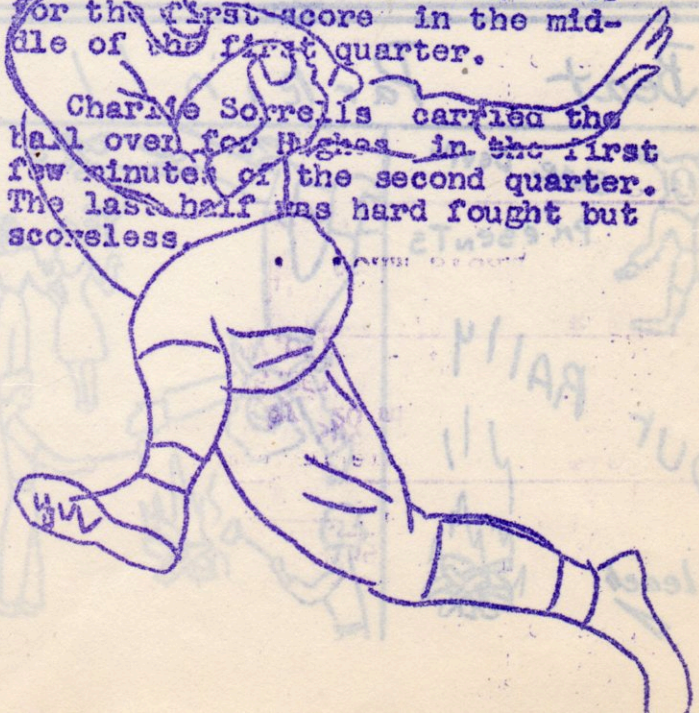 for the first score in the mid-
dle of the first quarter.
Charlie Sorrells carried the
ball over for Hughes in the first
few minutes of the second quarter.
The last half was hard fought but
scoreless.